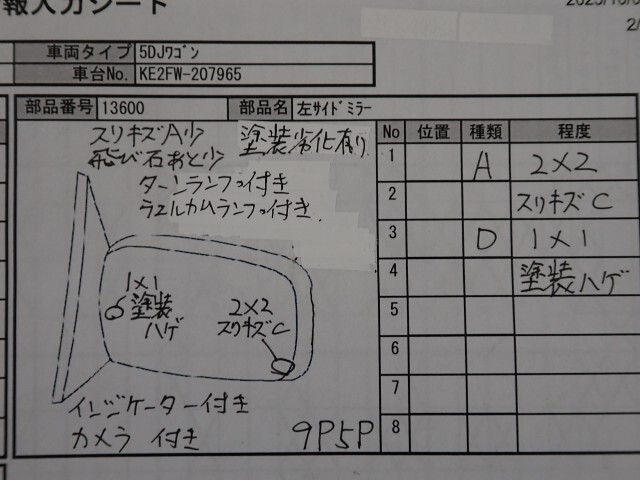 報入力シート
2/
車両タイプ 5DJワゴン
車台No. KE2FW-207965
部品番号 13600 部品名 左サイドミラー
スリキズA少 塗装劣化有り
飛び石あと少
ターンランプ付き
ウエルカムランプ付き
1×1
塗装
ハゲ
2×2
スリキズC
インジケーター付き
カメラ 付き 9P5P
No 位置 種類 程度
1 A 2×2
2 スリキズC
3 D 1×1
4 塗装ハゲ
5
6
7
8